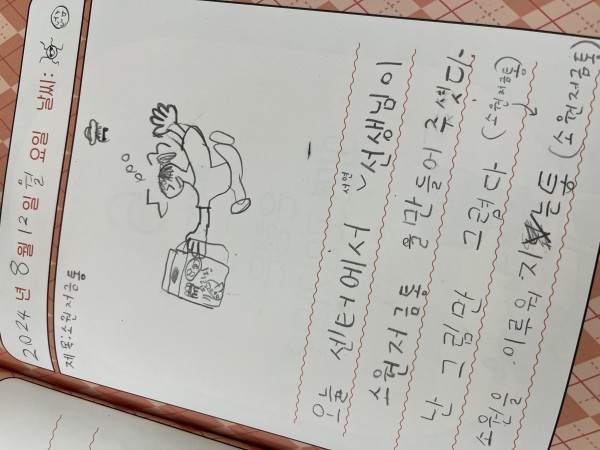 2024년 8월 12일 월요일 날씨:
제목:소원저금통
오늘 센터에서 서연 선생님이
소원저금통 을만들어 주셨다.
난 그림만 그렸다 (소원저금통)
소원을 이루워 지는통 (소원저금통)